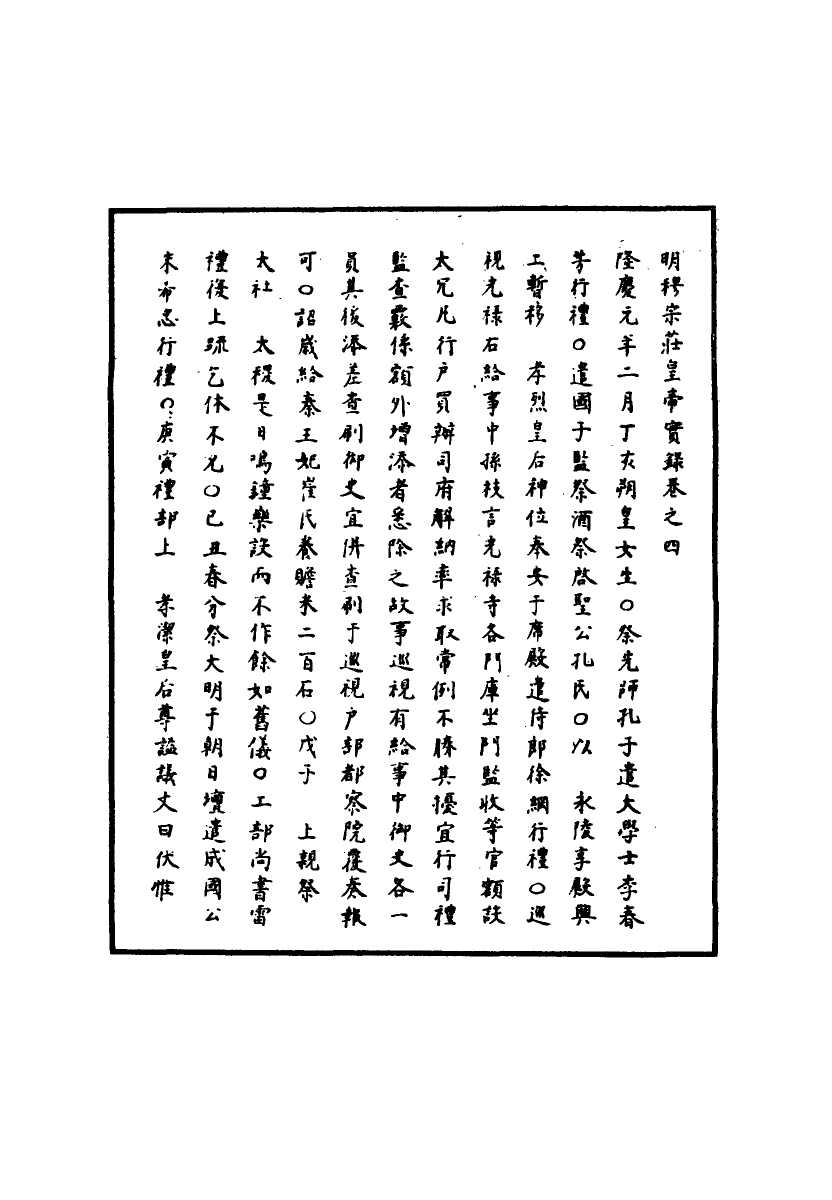 明穆宗莊皇帝實錄卷之四
隆慶元年二月丁亥朔皇女生○祭先師孔子遣大學士李春
芳行禮○遣國子監祭酒祭啓聖公孔氏○以 永陵享殿興
工暫移 孝烈皇后神位奉安于席殿遣侍郎徐綱行禮○巡
視光祿石給事中孫枝言光祿寺各門庫坐門監收等官額設
太冗凡行户買辦司府解納率求取常例不勝其擾宜行司禮
監查覈係額外增添者悉除之故事巡視有給事中御史各一
員其後添差查刷御史宜併查刷于巡視户部都察院覆奏報
可○詔歲給秦王妃崔氏養贍米二百石○戊子 上親祭
太社 太稷是日鳴鐘樂設而不作餘如舊儀○工部尚書雷
禮復上疏乞休不允○己丑春分祭大明于朝日壇遣成國公
朱希忠行禮○庚寅禮部上 孝潔皇后尊謚議文曰伏惟